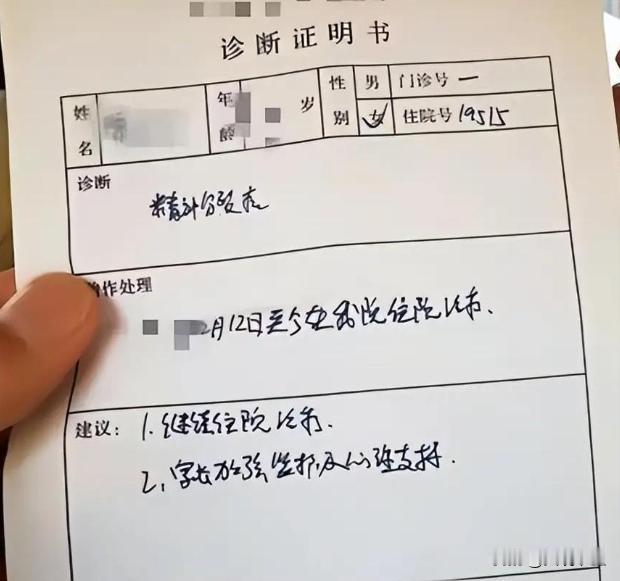 诊断证明书
姓名 年龄 岁 性别 男 女 门诊号 一
住院号 19515
诊断
精神分裂症
作处理
2月12日至今在我院住院治疗.
建议: 1. 继续住院治疗.
2、家长加强监护及心理支持.